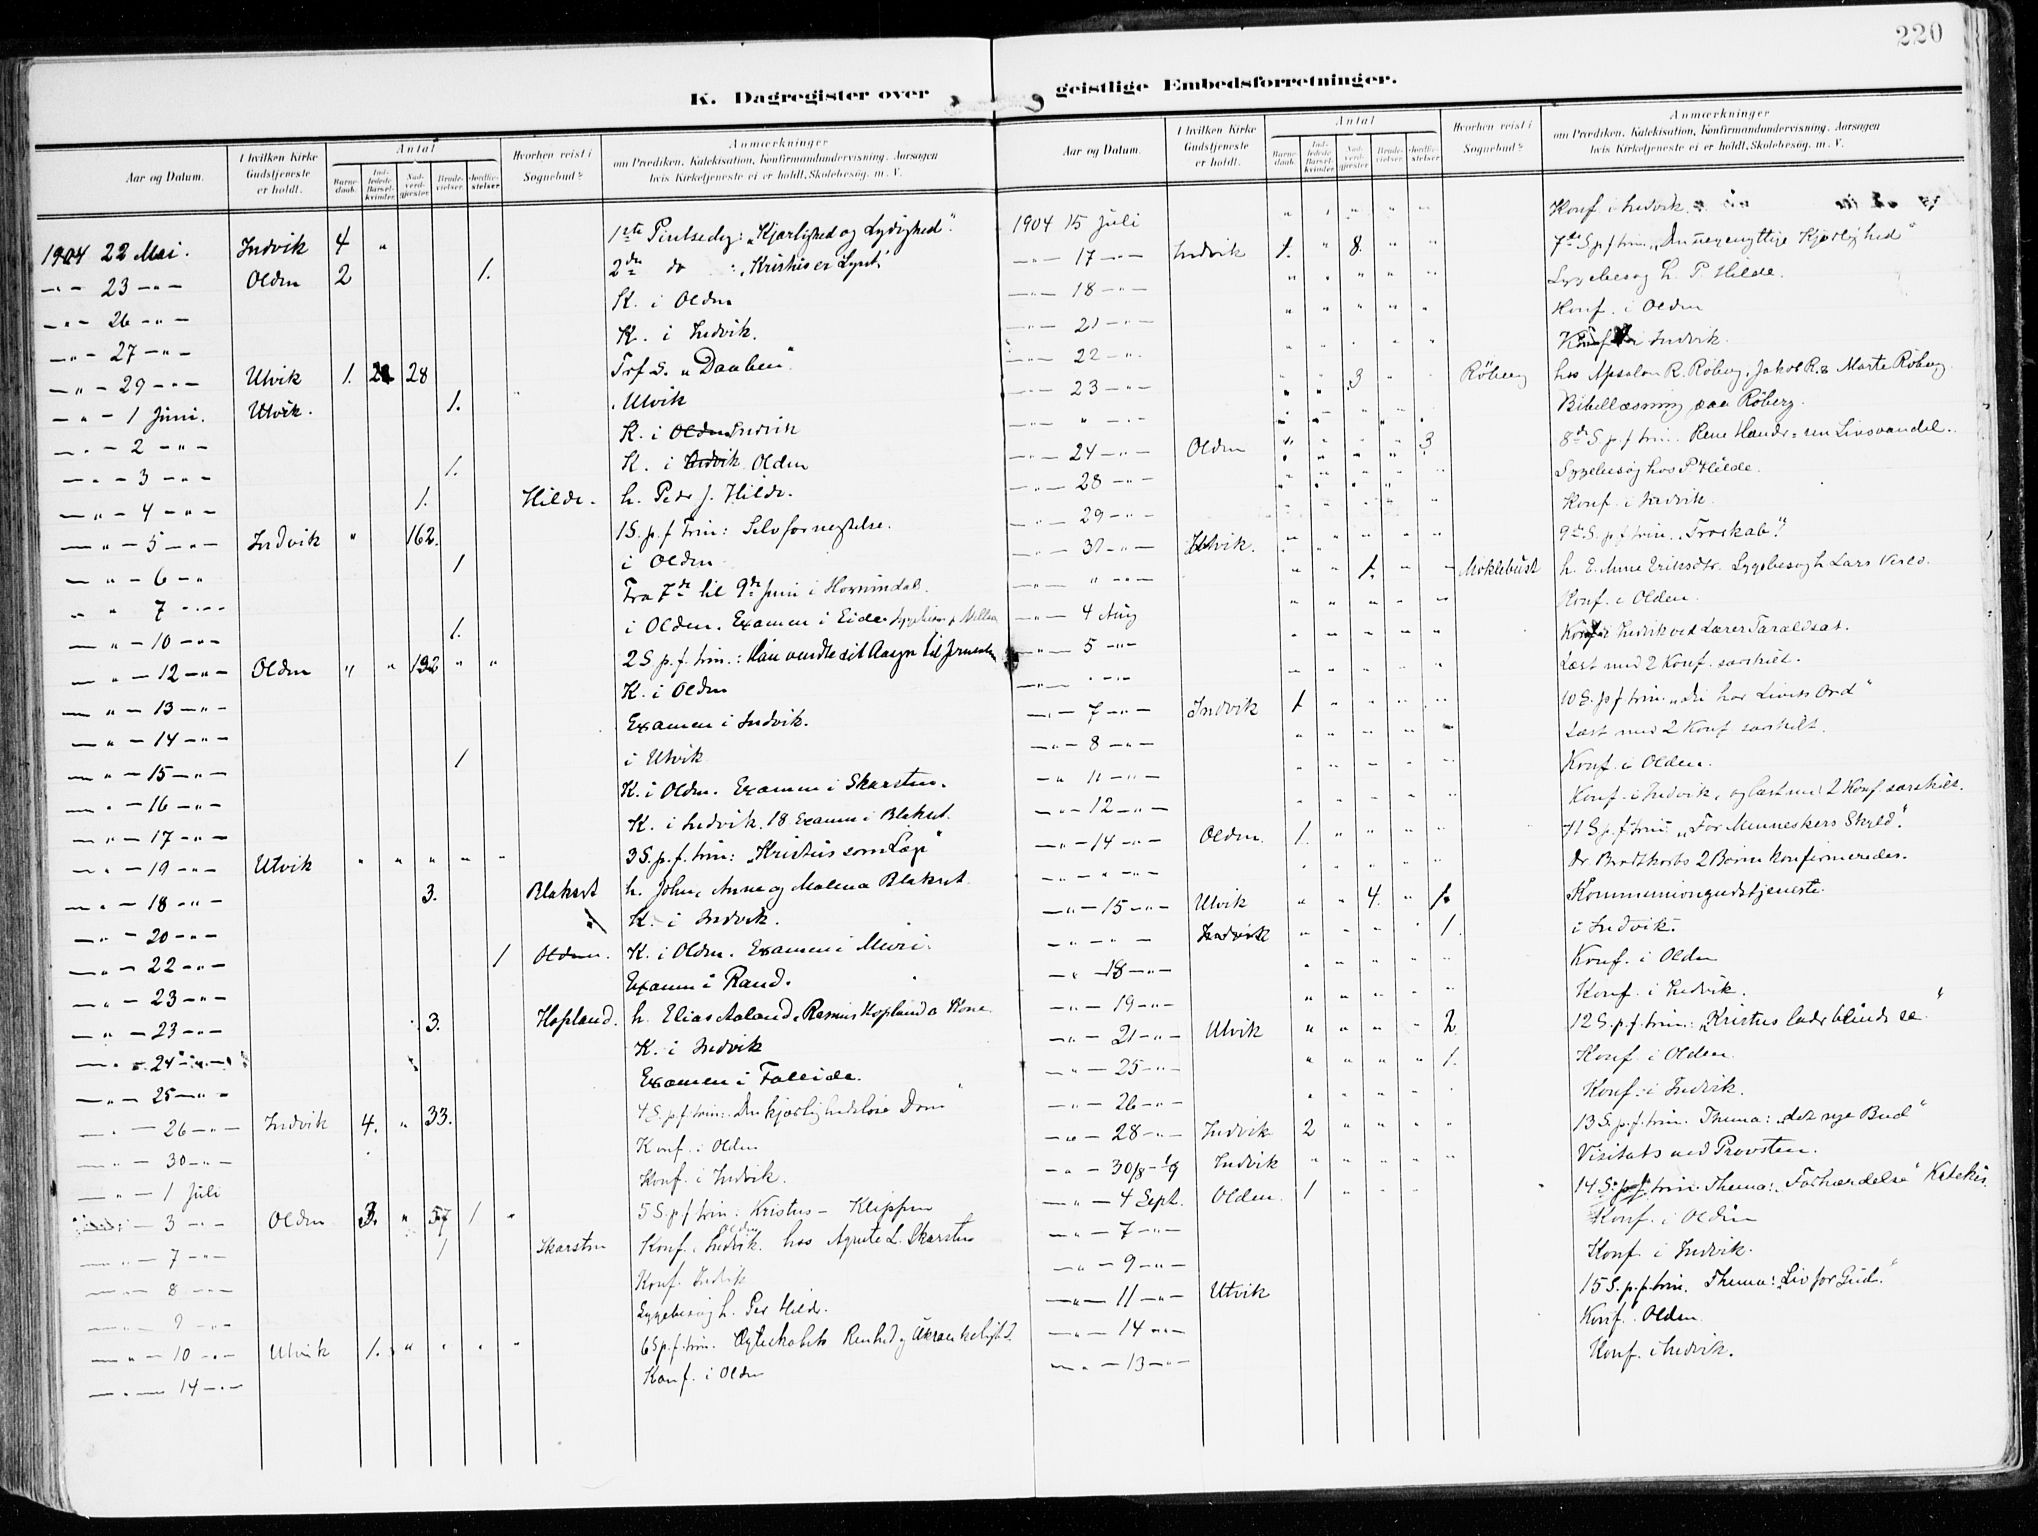 220
K. Dagregister over geistlige Embedsforretninger.
Aar og Datum. I hvilken Kirke Gudstjeneste er holdt. Antal Barnedaab. Indledede Barselkvinder. Nadverdgjester. Brudevielser. Jordfæstelser. Hvorhen reist i Sognebud. Anmærkninger om Prædiken, Katekisation, Konfirmandundervisning, Aarsagen hvis Kirketjeneste ei er holdt, Skolebesøg. m. V.
1904 22 Mai. Indvik 4 " 1ste Pintsedag: „Kjærlighed og Lydighed".
— " — 23 — " — Olden 2 1. 2den do : „Kristus er Lyset"
— " — 26 — " — K. i Olden
— " — 27 — " — K. i Indvik.
— " — 29 — " — Utvik 1. 28 Trf. S. „Daaben"
— " — 1 Juni. Utvik. 1. Utvik
— " — 2 — " — K. i Olden Indvik
— " — 3 — " — 1. K. i Indvik Olden
— " — 4 — " — 1. Hilde. h. Peder J. Hilde.
— " — 5 — " — Indvik " 162. 1 S. p. f. Trin: Selvfornegtelse.
— " — 6 — " — 1 i Olden
" " 7 — " — Fra 7de til 9de Juni i Hornindal.
— " — 10 — " — 1. i Olden. Examen i Eide
— " — 12 — " — Olden " " 132 " " 2 S. p. f. trin.: Han vendte sit Aasyn til Jerusalem
— " — 13 — " — K. i Olden
— " — 14 — " — Examen i Indvik.
— " — 15 — " — 1 i Utvik
— " — 16 — " — K. i Olden. Examen i Skarsten.
— " — 17 — " — K. i Indvik. 18 Examen i Blakset.
— " — 19 — " — Utvik " " " " " 3 S. p. f. trin: „Kristus som Læge"
— " — 18 — " — 3. Blakset h. John, Anne og Malena Blakset.
— " — 20 — " — K. i Indvik.
— " — 22 — " — 1 Olden. K. i Olden. Examen i Muri.
— " — 23 — " — Examen i Rand.
— " — 23 — " — 3. Hopland. h. Elias Aaland, Rasmus Hopland o Kone
— " — 24 — " — K. i Indvik
— " — 25 — " — Examen i Falleide.
— " — 26 — " — Indvik 4. " 33. 4 S. p. f. trin: Den kjærlighedsløse Dom"
— " — 30 — " — Konf. i Olden
— " — 1 Juli Konf. i Indvik.
— 3 — " — Olden 3. " 57 1 " 5 S. p. f. trin: Kristus — Klippen
— " — 7 — " — 1 Skarsten Konf. i Indvik. Olden hos Agnete L. Skarsten
— " — 8 — " — Konf. Indvik
— " — 9 — " — Sygebesøg h. Per Hilde.
— " — 10 — " — Utvik 1. " " " " 6 S. p. f. trin. Ægteskabets Renhed og Ukrænkelighed.
— " — 14 — " — Konf. i Olden
Aar og Datum. I hvilken Kirke Gudstjeneste er holdt. Antal Barnedaab. Indledede Barselkvinder. Nadverdgjester. Brudevielser. Jordfæstelser. Hvorhen reist i Sognebud. Anmærkninger om Prædiken, Katekisation, Konfirmandundervisning, Aarsagen hvis Kirketjeneste ei er holdt, Skolebesøg. m. V.
1904 15 Juli " " " " " Konf. i Indvik.
— " — 17 — " — Indvik 1. " 8. " " 7de S. p f trin. „Den uegennyttige Kjærlighed"
— " — 18 — " — " " " " " Sygebesøg h. P Hilde.
— " — 21 — " — " " " " " Konf. i Olden
— " — 22 — " — " " " " " Konf. i Indvik.
— " — 23 — " — " " 3 " " Røberg hos Apsalon R. Røberg, Jakob R. & Marte Røberg
— " — " — " — " " " " " Bibellæsning paa Røberg.
— " — 24 — " — Olden " " " " 3 8de S. p. f trin. Rene Hænder = ren Livsvandel.
— " — 28 — " — " " " " " Sygebesøg hos P Hilde.
— " — 29 — " — " " Konf. i Indvik.
— " — 31 — " — Utvik. " " " " " 9de S. p. f trin. „Troskab"
— " — " — " — " " 1. " " Myklebust h. E. Anne Eriksdtr. Sygebesøg h Lars
— " — 4 Aug " " " " " Konf. i Olden.
— " — 5 — " — " " " " " Konf. i Indvik ved Lærer Taraldset.
— " — " — " — " " " " " Læst med 2 Konf. særskilt.
— " — 7 — " — Indvik 1 " " " " 10 S. p f trin. „Du har Livets Ord"
— " — 8 — " — " " " " " Læst med 2 Konf særskilt.
— " 11 — " — " " " " " Konf. i Olden.
— " — 12 — " — " " " " " Konf. i Indvik, og læst med 2 Konf særskilt.
— " — 14 — " — Olden. 1. " " " " 11 S. p. f trin. „For Menneskers Skyld".
— " — " — " — " " " " " Dr. Brodtkorbs 2 Børn konfirmeredes.
— " — 15 — " — Utvik " " 4. " 1. Kommuniongudstjeneste.
— " — " — " — Indvik " " " " 1. i Indvik.
— " — 18 — " — " " " " " Konf. i Olden
— " — 19 — " — " " " " " Konf. i Indvik.
— " — 21 — " — Utvik " " " " 2 12 S. p. f. trin.: „Kristus lader blinde se"
— " — 25 — " — " " " " 1. Konf. i Olden.
— " — 26 — " — " " " " " Konf. i Indvik.
— " — 28 — " — Indvik 2 " " " " 13 S. p. f. trin. Thema: „det nye Bud"
— " — 30/8 – 1/9 Indvik " " " " " Visitats ved Provsten.
— " — 4 Sept. Olden. 1 " " " 14 S. p. f. trin. Thema: „Forhærdelse" Katekis.
— " — 7 — " — Konf. i Olden
— " — 9 — " — Konf. i Indvik.
— " — 11 — " — Utvik 15 S. p. f. trin. Thema: „Liv for Gud."
— " — 14 — " — Konf. Olden
— " — 13 — " — Konf. i Indvik.